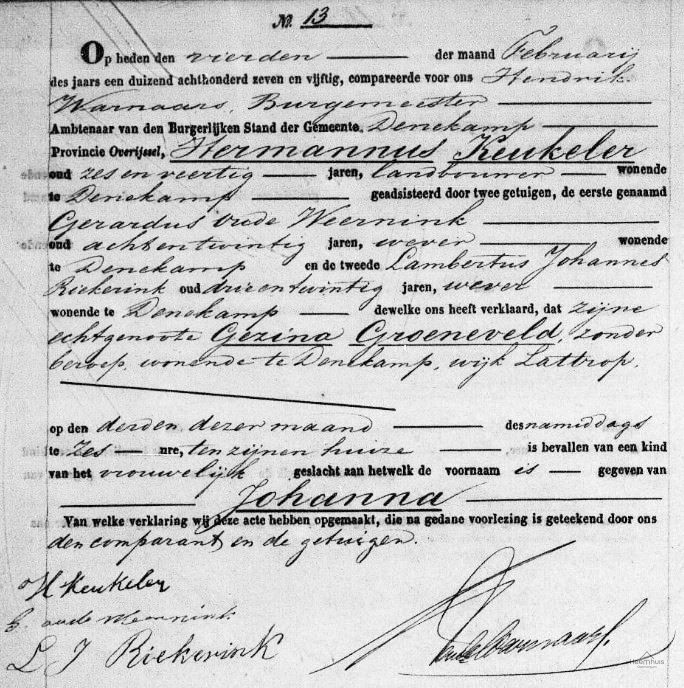 No. 13
Op heden den vierden der maand Februarij
des jaars een duizend achthonderd zeven en vijftig, compareerde voor ons Hendrik
Warnaars, Burgemeester
Ambtenaar van den Burgerlijken Stand der Gemeente Denekamp
Provincie Overijssel, Hermannus Keukeler
oud zes en veertig jaren, landbouwer wonende
te Denekamp geadsisteerd door twee getuigen, de eerste genaamd
Gerardus oude Weernink
oud achtentwintig jaren, wever wonende
te Denekamp en de tweede Lambertus Johannes
Riekerink oud drieentwintig jaren, wever
wonende te Denekamp dewelke ons heeft verklaard, dat zijne
echtgenoote Gezina Groeneveld, zonder
beroep, wonende te Denekamp, wijk Lattrop,
op den derden dezer maand des namiddags
te Zes ure, ten zijnen huize is bevallen van een kind
van het vrouwelijk geslacht aan hetwelk de voornaam is gegeven van
Johanna
Van welke verklaring wij deze acte hebben opgemaakt, die na gedane voorlezing is geteekend door ons
den comparant en de getuigen.
H Keukeler
G. oude Weernink
L J Riekerink
Warnaars